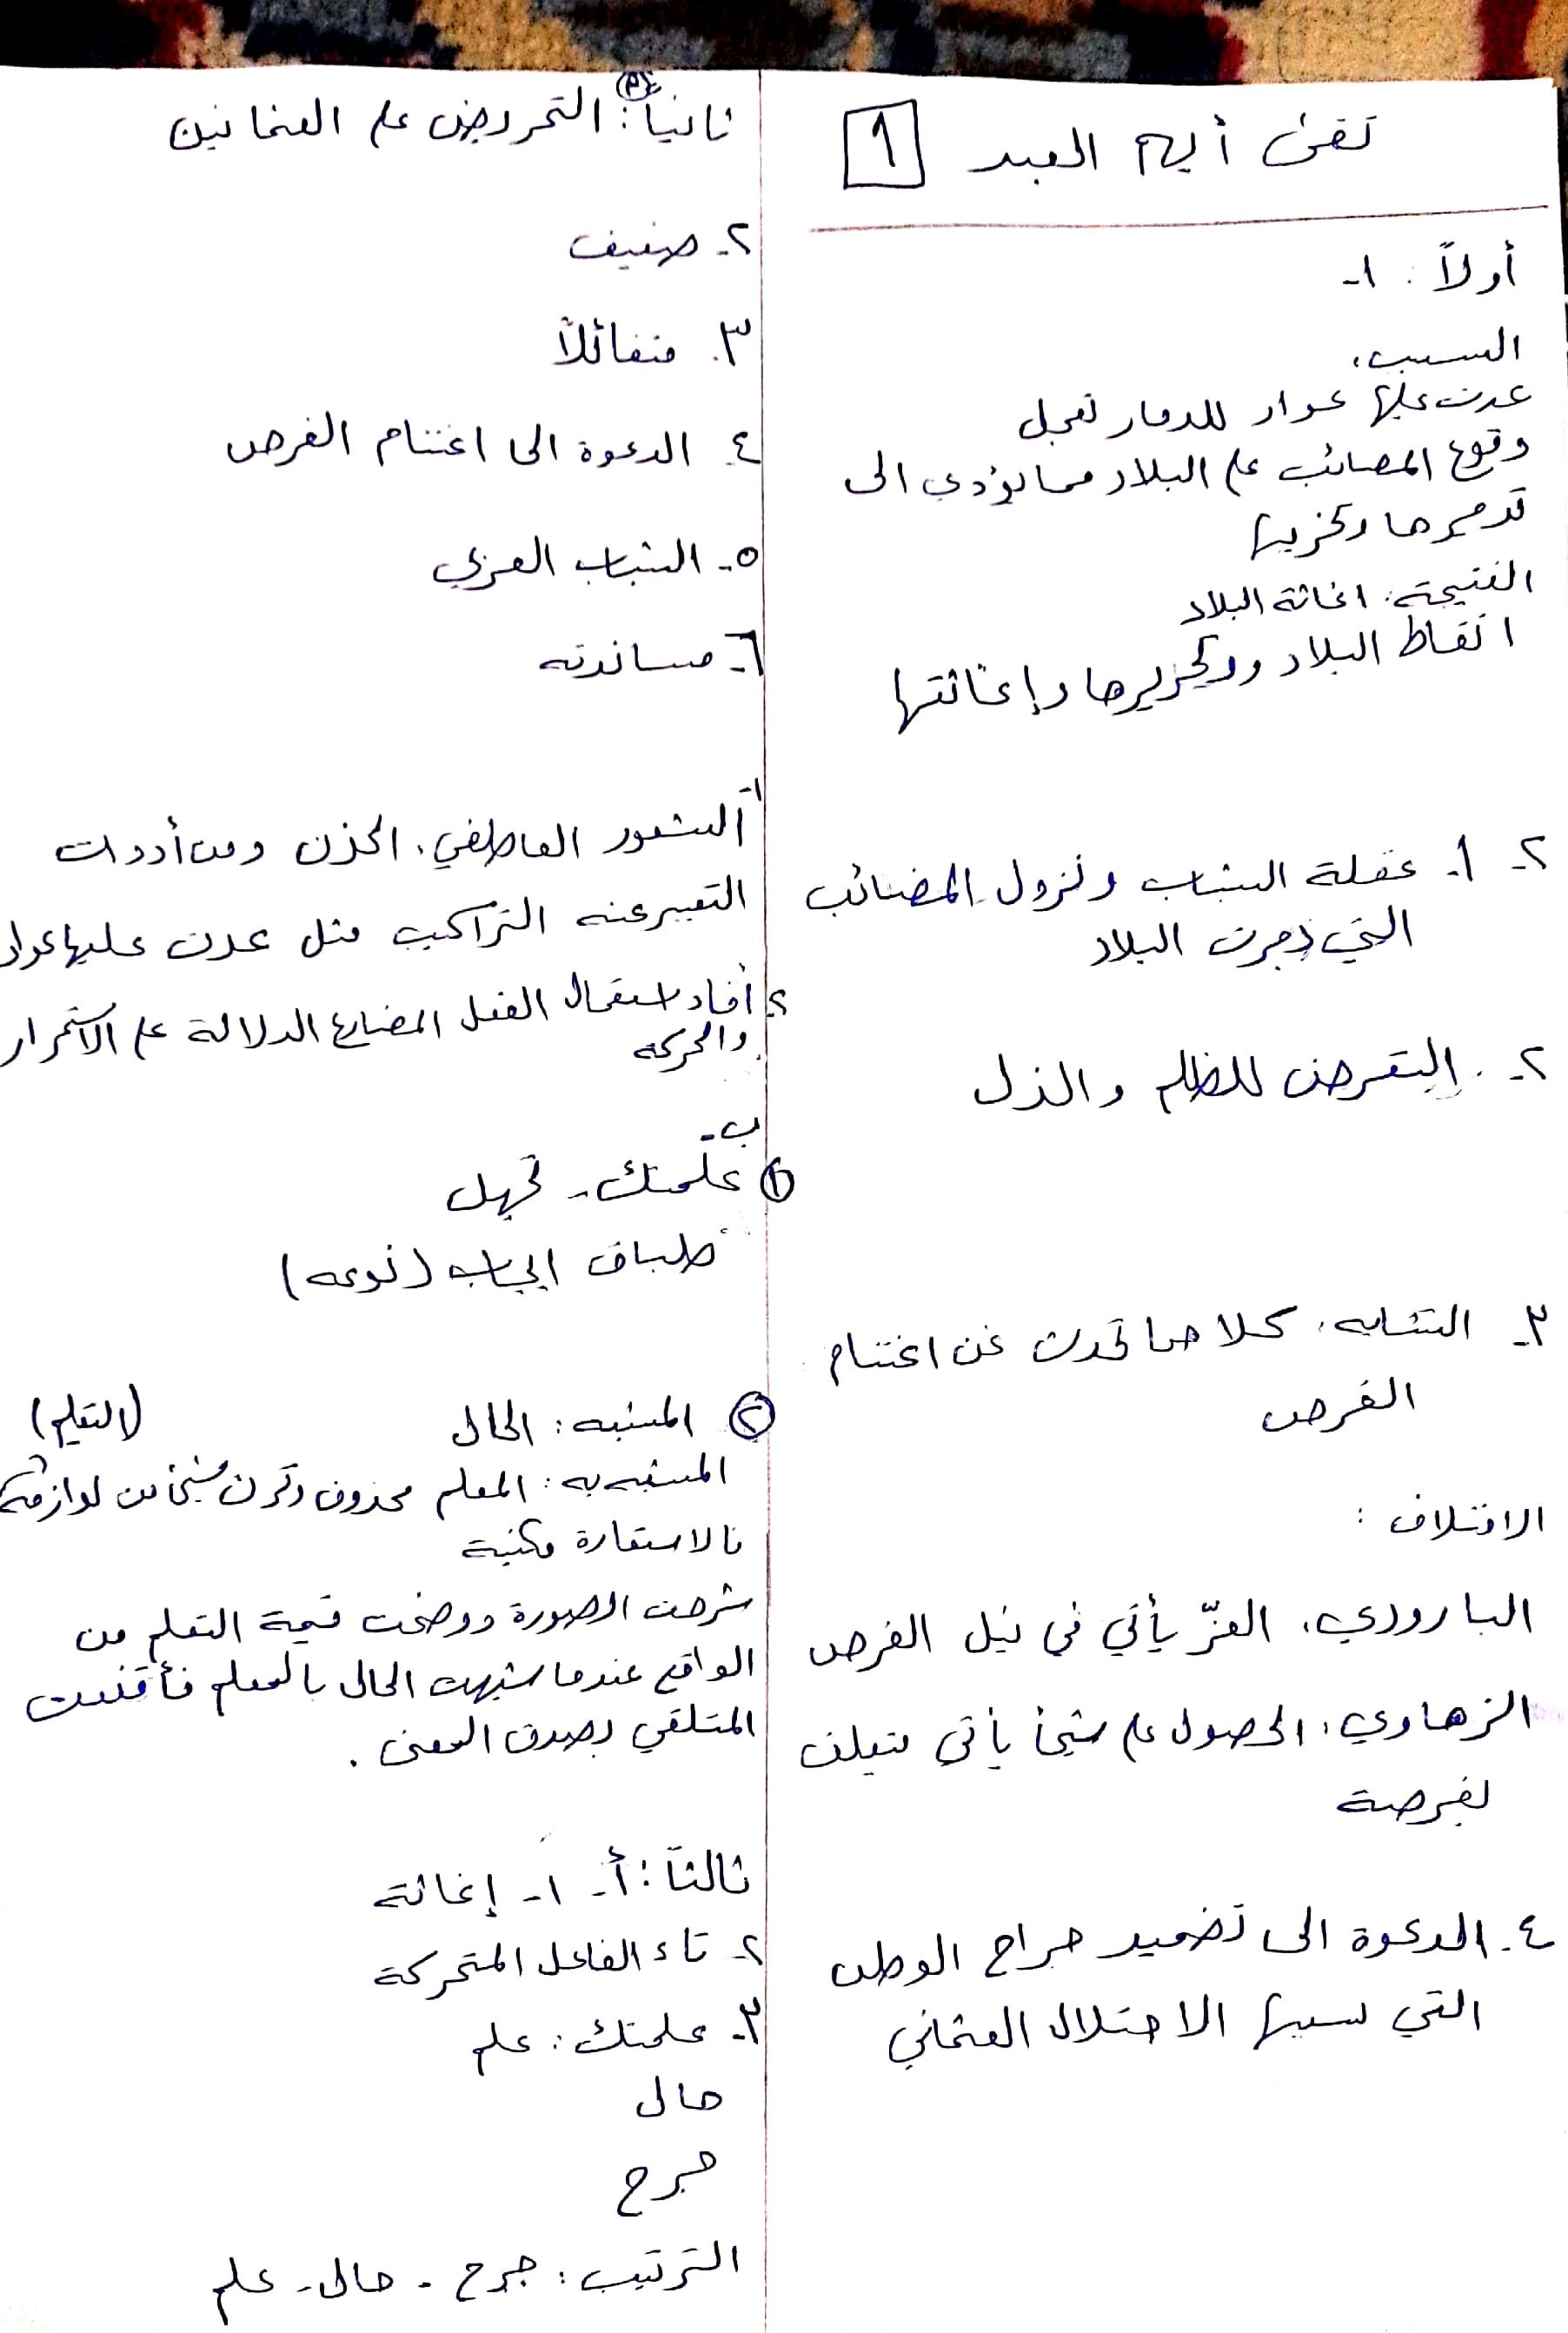 أيها العبد ١
أولاً: ١-
السبب:
عدت عليها عواد للدمار تعجل
وقوع المصائب على البلاد مما يؤدي الى
تدميرها وتخريبها
النتيجة: اغاثة البلاد
البلاد وتحريرها وإغاثتها
٢- ١- غفلة الشباب ونزول المصائب
التي دمرت البلاد
٢- التعرض للظلم والذل
٣- التشابه: كلاهما تحدث عن اغتنام
الفرص
الاختلاف:
البارودي: العزّ يأتي في نيل الفرص
الزهاوي: الحصول على شيئاً يأتي
لفرصة
٤- الدعوة الى تضميد جراح الوطن
التي سببها الاحتلال العثماني
ثانياً: (٢) التحريض على العثمانين
٢- ضيف
٣- متفائلاً
٤- الدعوة الى اغتنام الفرص
٥- الشباب العربي
٦- مساندته
١- الشعور العاطفي: الحزن ومن أدوات
التعبير عنه التراكيب مثل عدت عليها عواد
٢- أفاد استعمال الفعل المضارع الدلالة على الاستمرار
والحركة
ب-
① علّمتك - تجهل
طباق ايجاب (نوعه)
② المشبه: الحال (التعليم)
المشبه به: المعلم محذوف وترك شيئ من لوازمه
فالاستعارة مكنية
شرحت الصورة ووضحت قيمة التعلم من
الواقع عندما شبهت الحال بالمعلم فأقنعت
المتلقي بصدق المعنى.
ثالثاً: أ- ١- إغاثة
٢- تاء الفاعل المتحركة
٣- علمتك: علم
حال
جرح
الترتيب: جرح - حال - علم